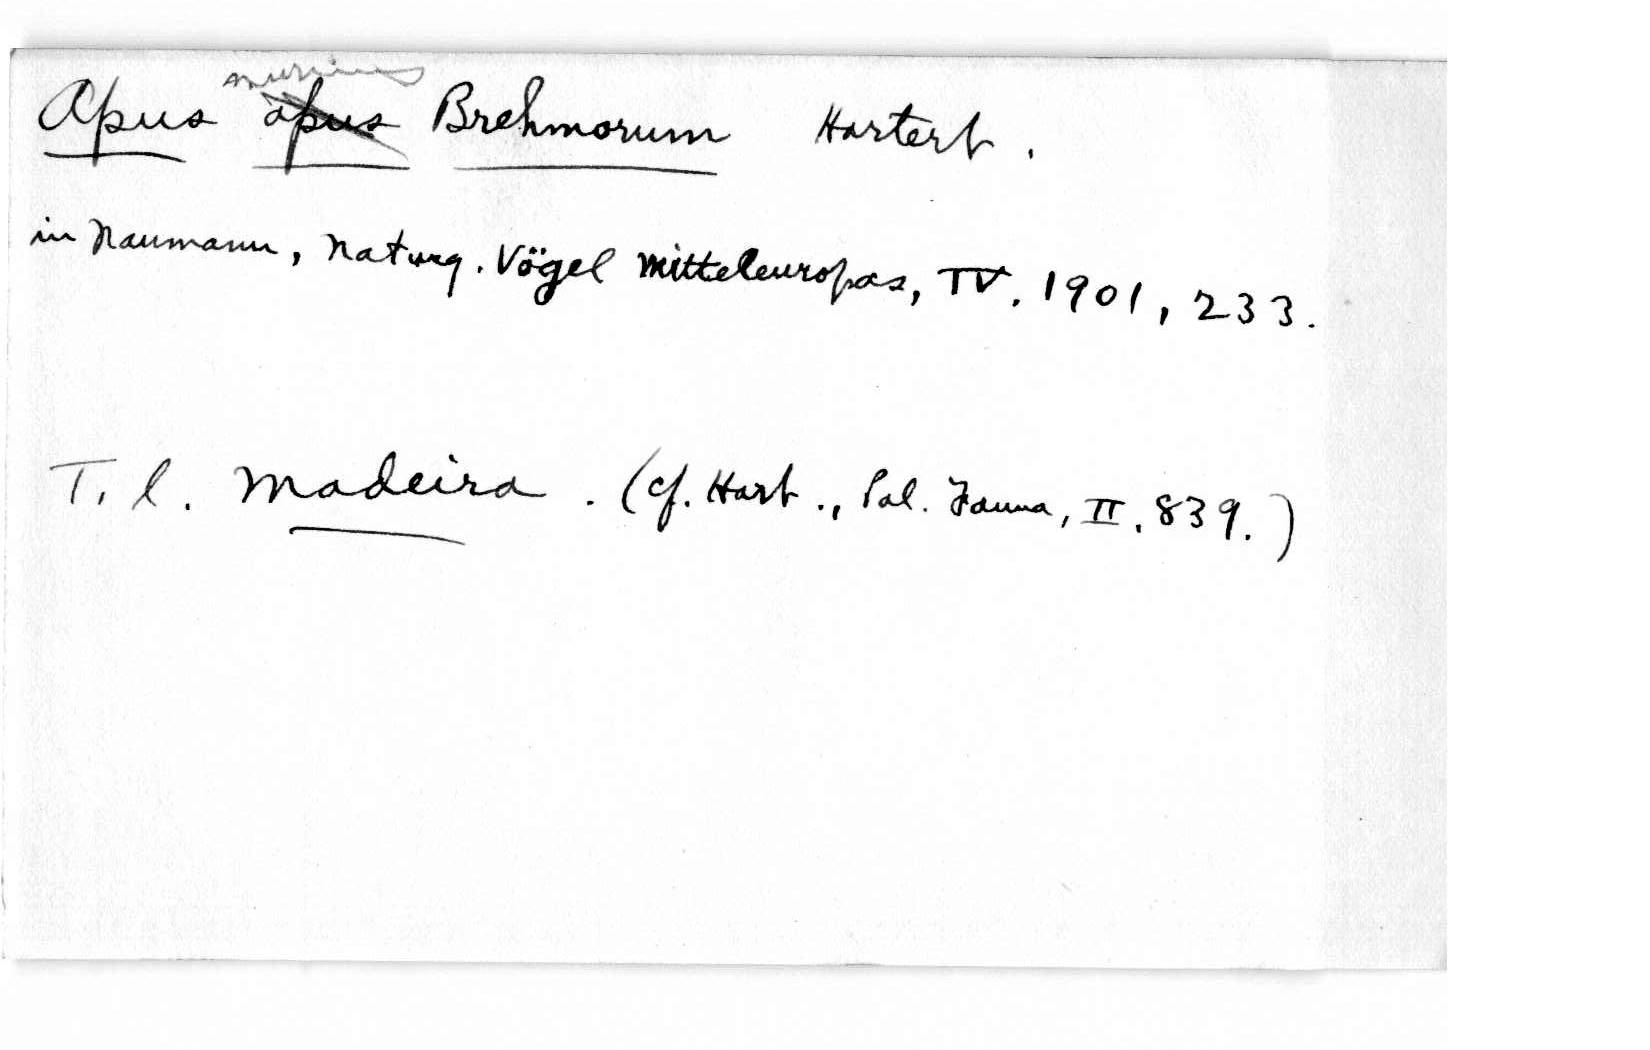 murinus
Apus apus Brehmorum Hartert.
in Naumann, Naturg. Vögel Mitteleuropas, IV. 1901, 233.
T. l. Madeira. (cf. Hart., Pal. Fauna, II. 839.)